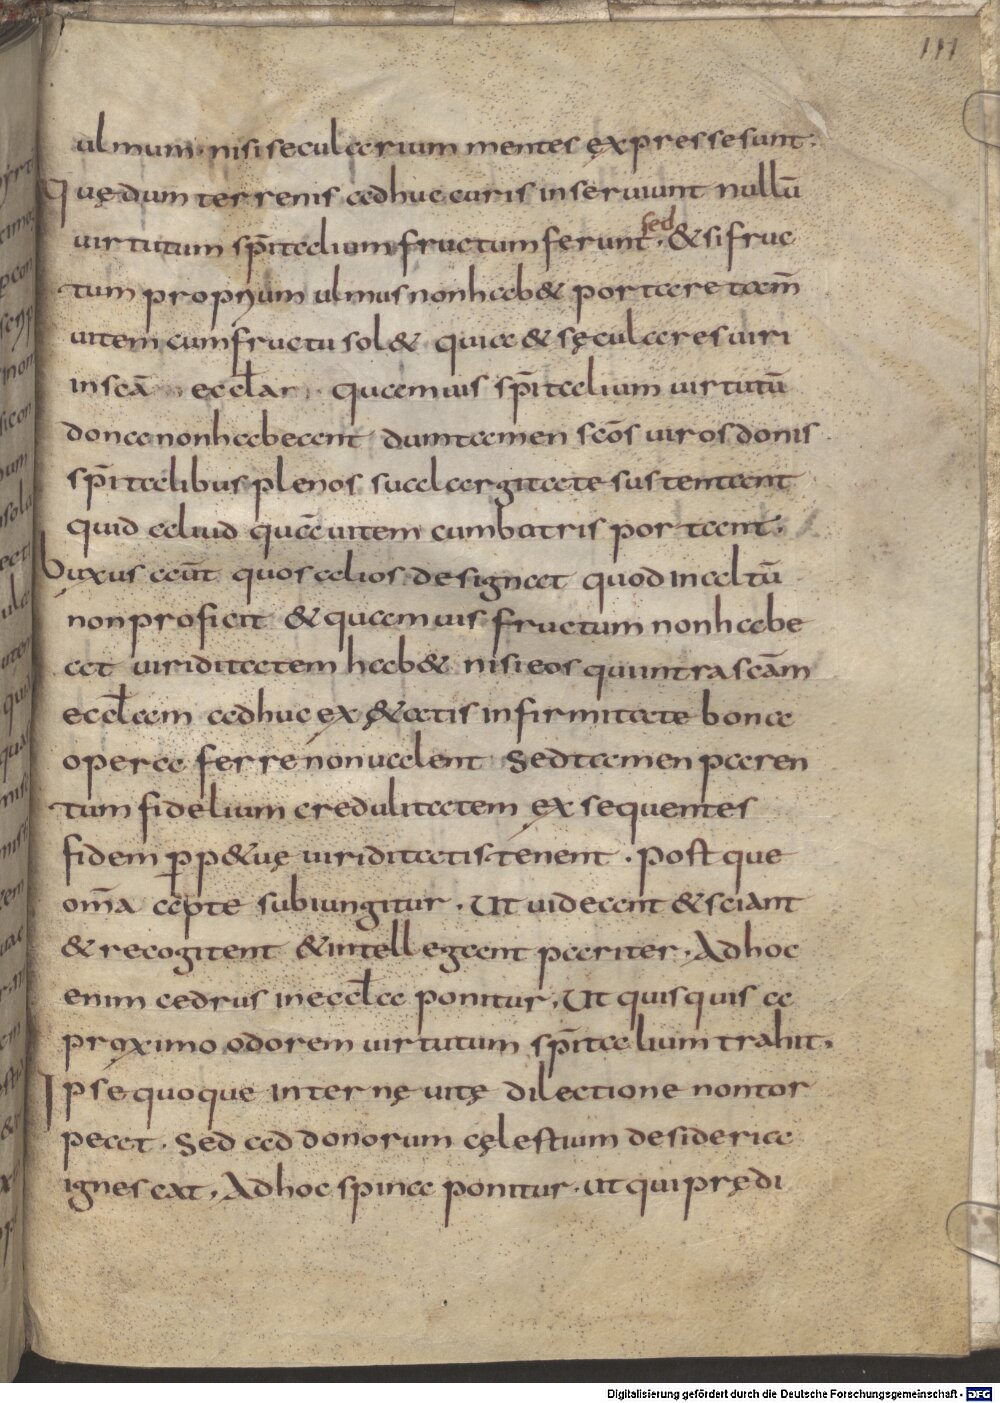 117
ulmum · nisi secularium mentes expresse sunt ·
Quędum terrenis adhuc curis inseruiunt nullū
uirtutum sp̄italium fructum ferunt · sed & si fruc
tum proprium ulmus non hab& portare tam̄
uitem cum fructu sol& quia & sęculares uiri
in scā eccl̄a · quamuis sp̄italium uirtutū
dona non habeant dum tamen scōs uiros donis
sp̄italibus plenos sua largitate sustentant
quid aliud quā uitem cum batris portant ·
buxus aūt quos alios designat quod in altū
non proficit & quamuis fructum non habe
at uiriditatem hab& nisi eos qui intra scām
eccl̄am adhuc ex ę&atis infirmitate bona
opera ferre non ualent Sed tamen paren
tum fidelium credulitatem exsequentes
fidem ꝑp&uę uiriditatis tenent · Post que
om̄a apte subiungitur · Ut uideant & sciant
& recogitent & intellegant pariter · Ad hoc
enim cedrus in eccl̄a ponitur · Ut quisquis a
proximo odorem uirtutum sp̄italium trahit ·
Ipse quoque internę uitę dilectione non tor
peat · Sed ad donorum cęlestium desideria
ignescat · Ad hoc spina ponitur · ut qui prędi
Digitalisierung gefördert durch die Deutsche Forschungsgemeinschaft - DFG